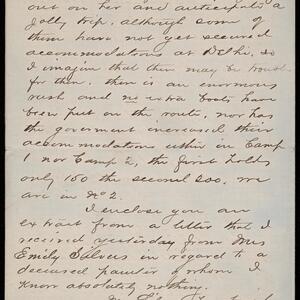 out on her and anticipate a
jolly trip, although some of
them have not yet secured
accommodations at Delhi, so
I imagine that there may be trouble
for them, there is an enormous
rush and no extra boats have
been put on the route, nor has
the goverment increased their
accommodations either in Camp
1 nor Camp 2, the first holds
only 150 the second 200. we
are in No 2.
I enclose you an
extract from a letter that I
received yesterday from Mrs
Emily Silvers in regard to a
deceased painter of whom I
know absolutely nothing.